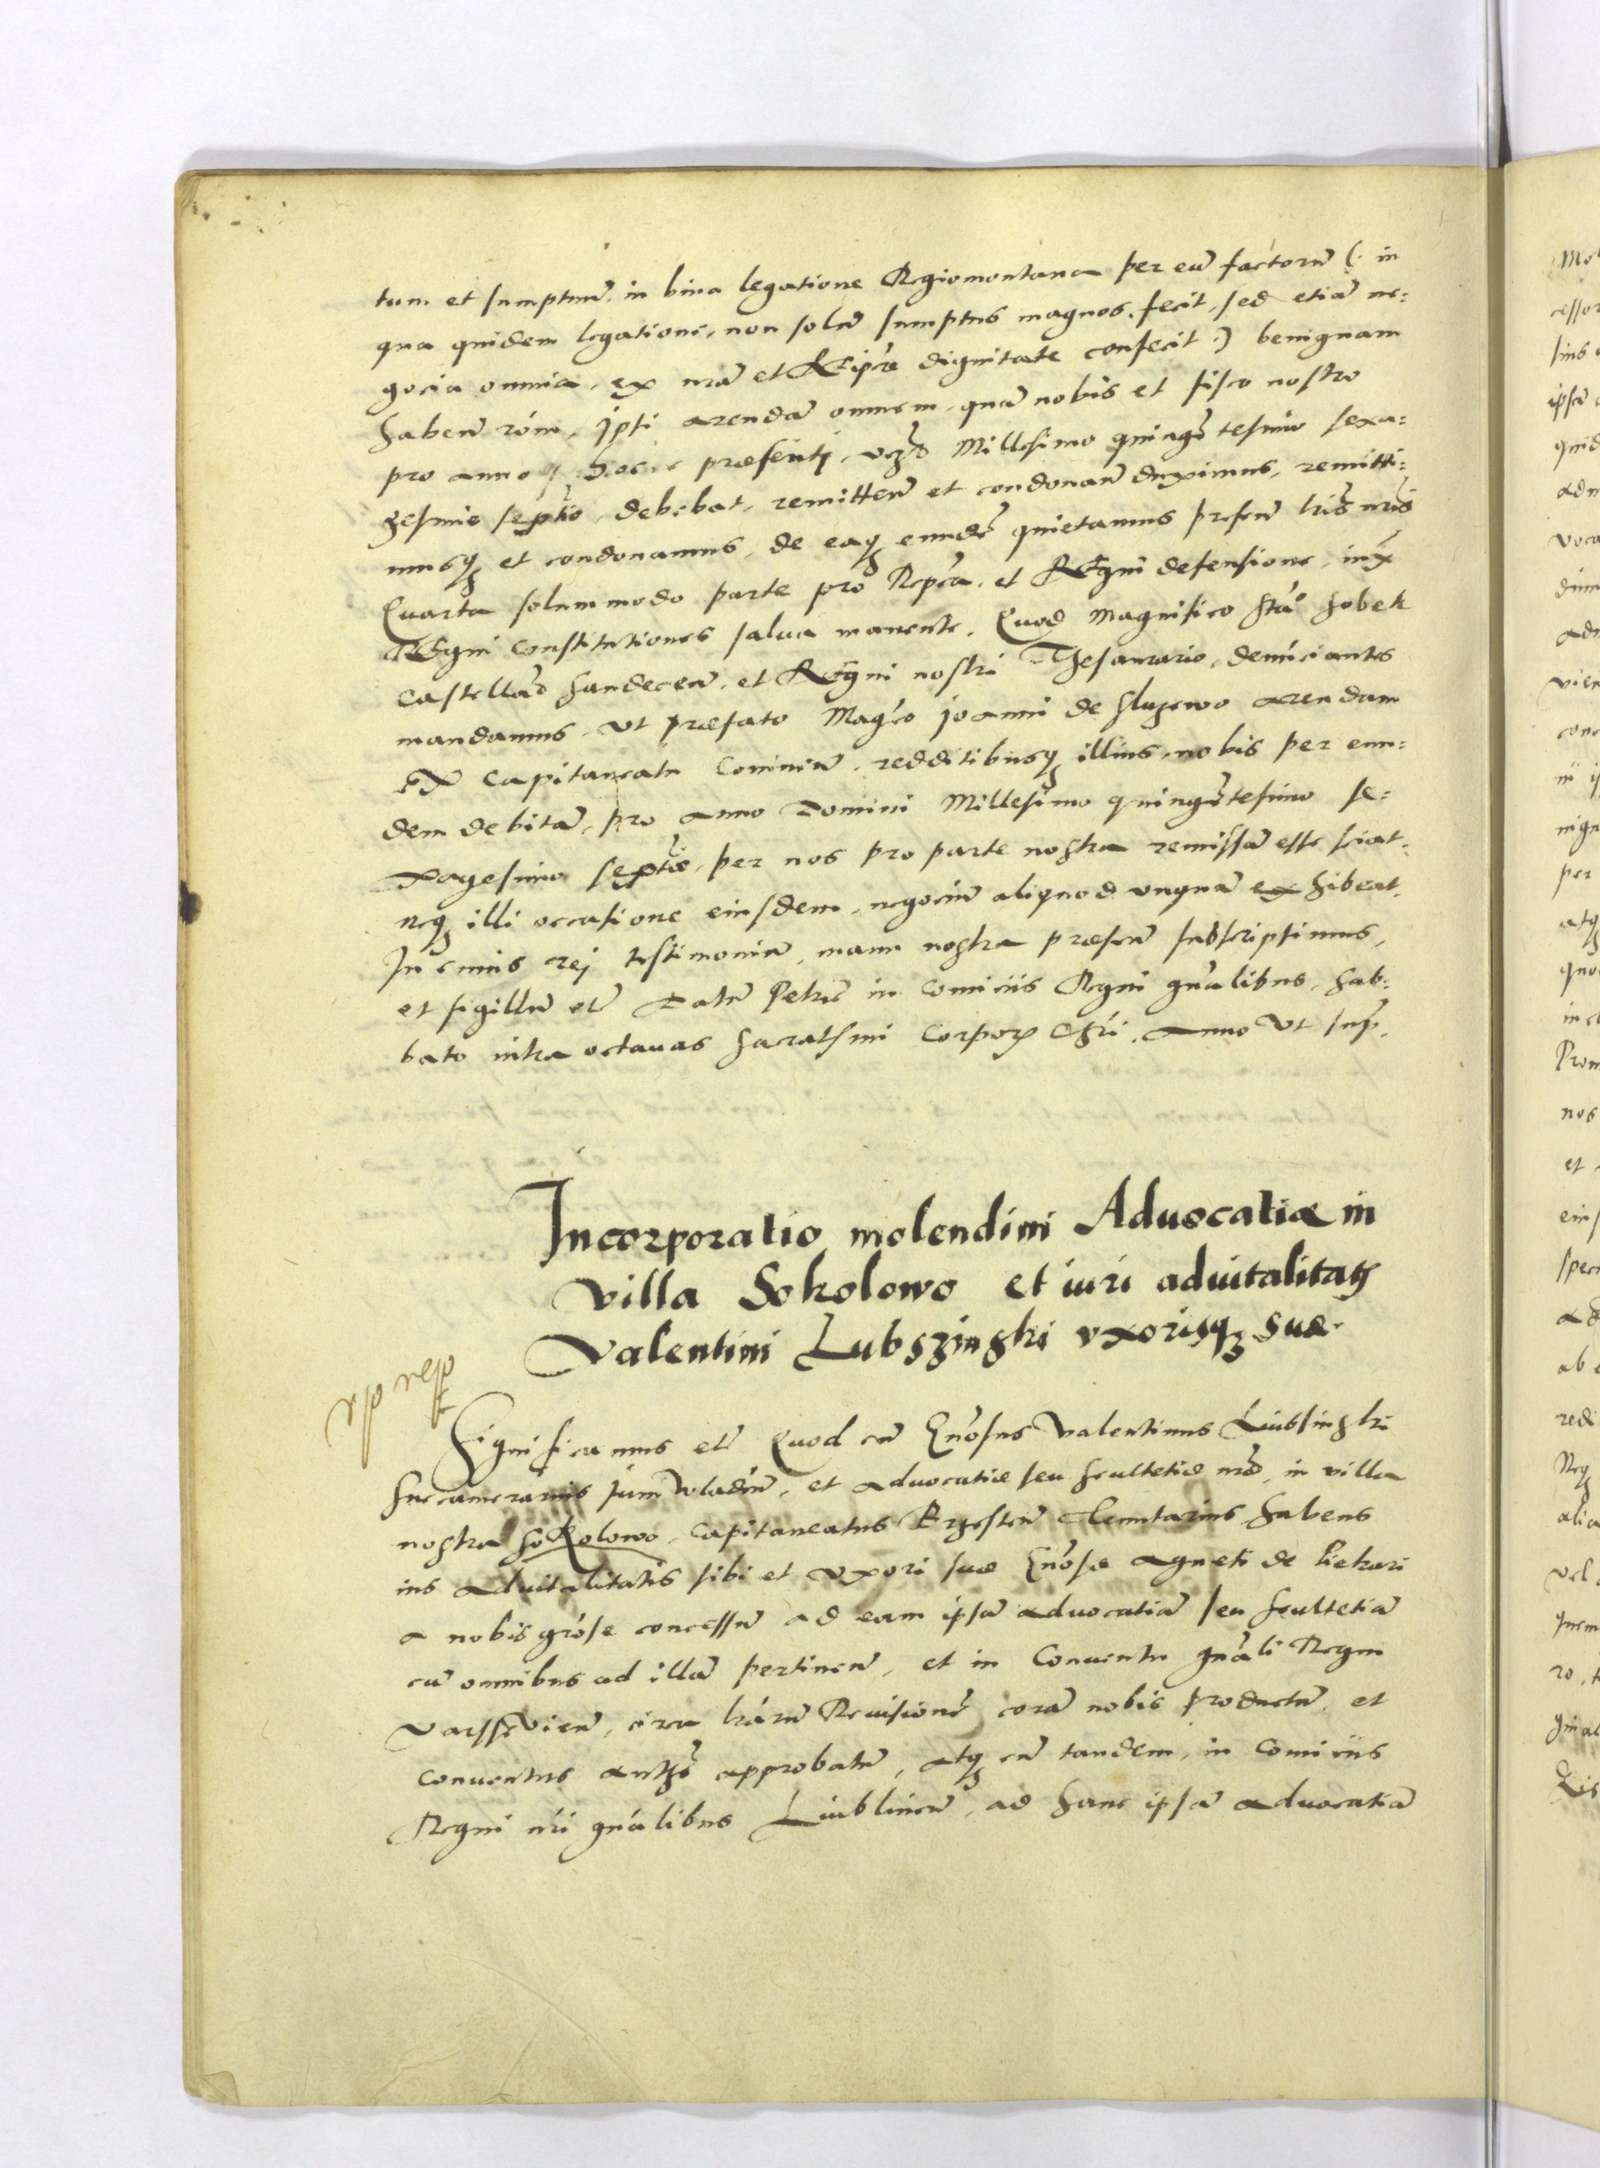 tum et sumptuũ, in bina legatione Regiomontana per eũ factorũ (: in
qua quidem legatione, non solũ sumptus magnos fecit, sed etiã ne:
gocia omnia, ex nrã et Reipcæ dignitate confecit :) benignam
habeñ rõnem, ipsi arendã omnem, quã nobis et fisco nostro
pro anno præsenti, vcz Millesimo quingẽtesimo sexa:
gesimo septĩo, debebat, remitteñ et condonañ duximus, remitti:
musq3 et condonamus, de eaq3 eundẽ quietamus preseñ lrĩs nrĩs
Quarta solummodo parte pro Repcâ, et Regni defensione, iuxᷓ
Regni Constitutiones salua manente. Quod Magnifico Stão Sobek
Castellãо Sandeceñ, et Regni nostri Thesaurario, denũciantes
mandamus, vt præfato Magco Joanni de Sluzewo arendam
ex Capitaneatu Coniñeñ, redditibusq3 illius, nobis per eun:
dem debitã, pro anno Domini Millesimo quingẽtesimo se:
xagesimo septĩo, per nos pro parte nostra remissã esse sciat,
neq3 illi occasione eiusdem, negociũ aliquod vnquã exhibeat.
In cuius rej testimoniũ, manu nostra præseñ subscripsimus,
et sigillũ etc̃ Datũ Petric̃ in Comiciis Regni gnãlibus, Sab:
bato intra octauas Sacratissimi Corporꝭ Chrĩ. Anno vt supᷓ.
Incorporatio molendini Aduocatiæ in
villa Sokolowo et iuri aduitalitatꝭ
Valentini Lubszinski vxorisq3 suæ.
Significamus etc̃ Quod cũ Gnõsus Valentinus Liubsinski
Succamerarius Juniwladiñ, et aduocatiæ seu scultetiæ nræ, in villa
nostra Sokolowo, Capitaneatus Brzesteñ Tenutarius, habens
ius aduitalitatis sibi et vxori suæ Gnõsæ Agneti de Piekari
a nobis grõse concessũ ad eam ipsã aduocatiã seu scultetiã
cũ omnibus ad illã pertineñ, et in Conuentu gnãli Regni
Varsschouieñ, circa lrãrũ Reuisionẽ corã nobis productũ, et
Conuentus authẽ approbatũ, atq3 cũ tandem, in Comiciis
Regni nrĩ gnãlibus Liublineñ, ad hanc ipsã aduocatiã